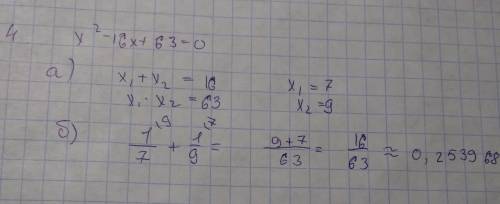 4 x² - 16x + 63 = 0
а) x₁ + x₂ = 16 x₁ = 7
x₁ · x₂ = 63 x₂ = 9
б) 1/7 \9 + 1/9 \7 = 9+7/63 = 16/63 ≈ 0,253968